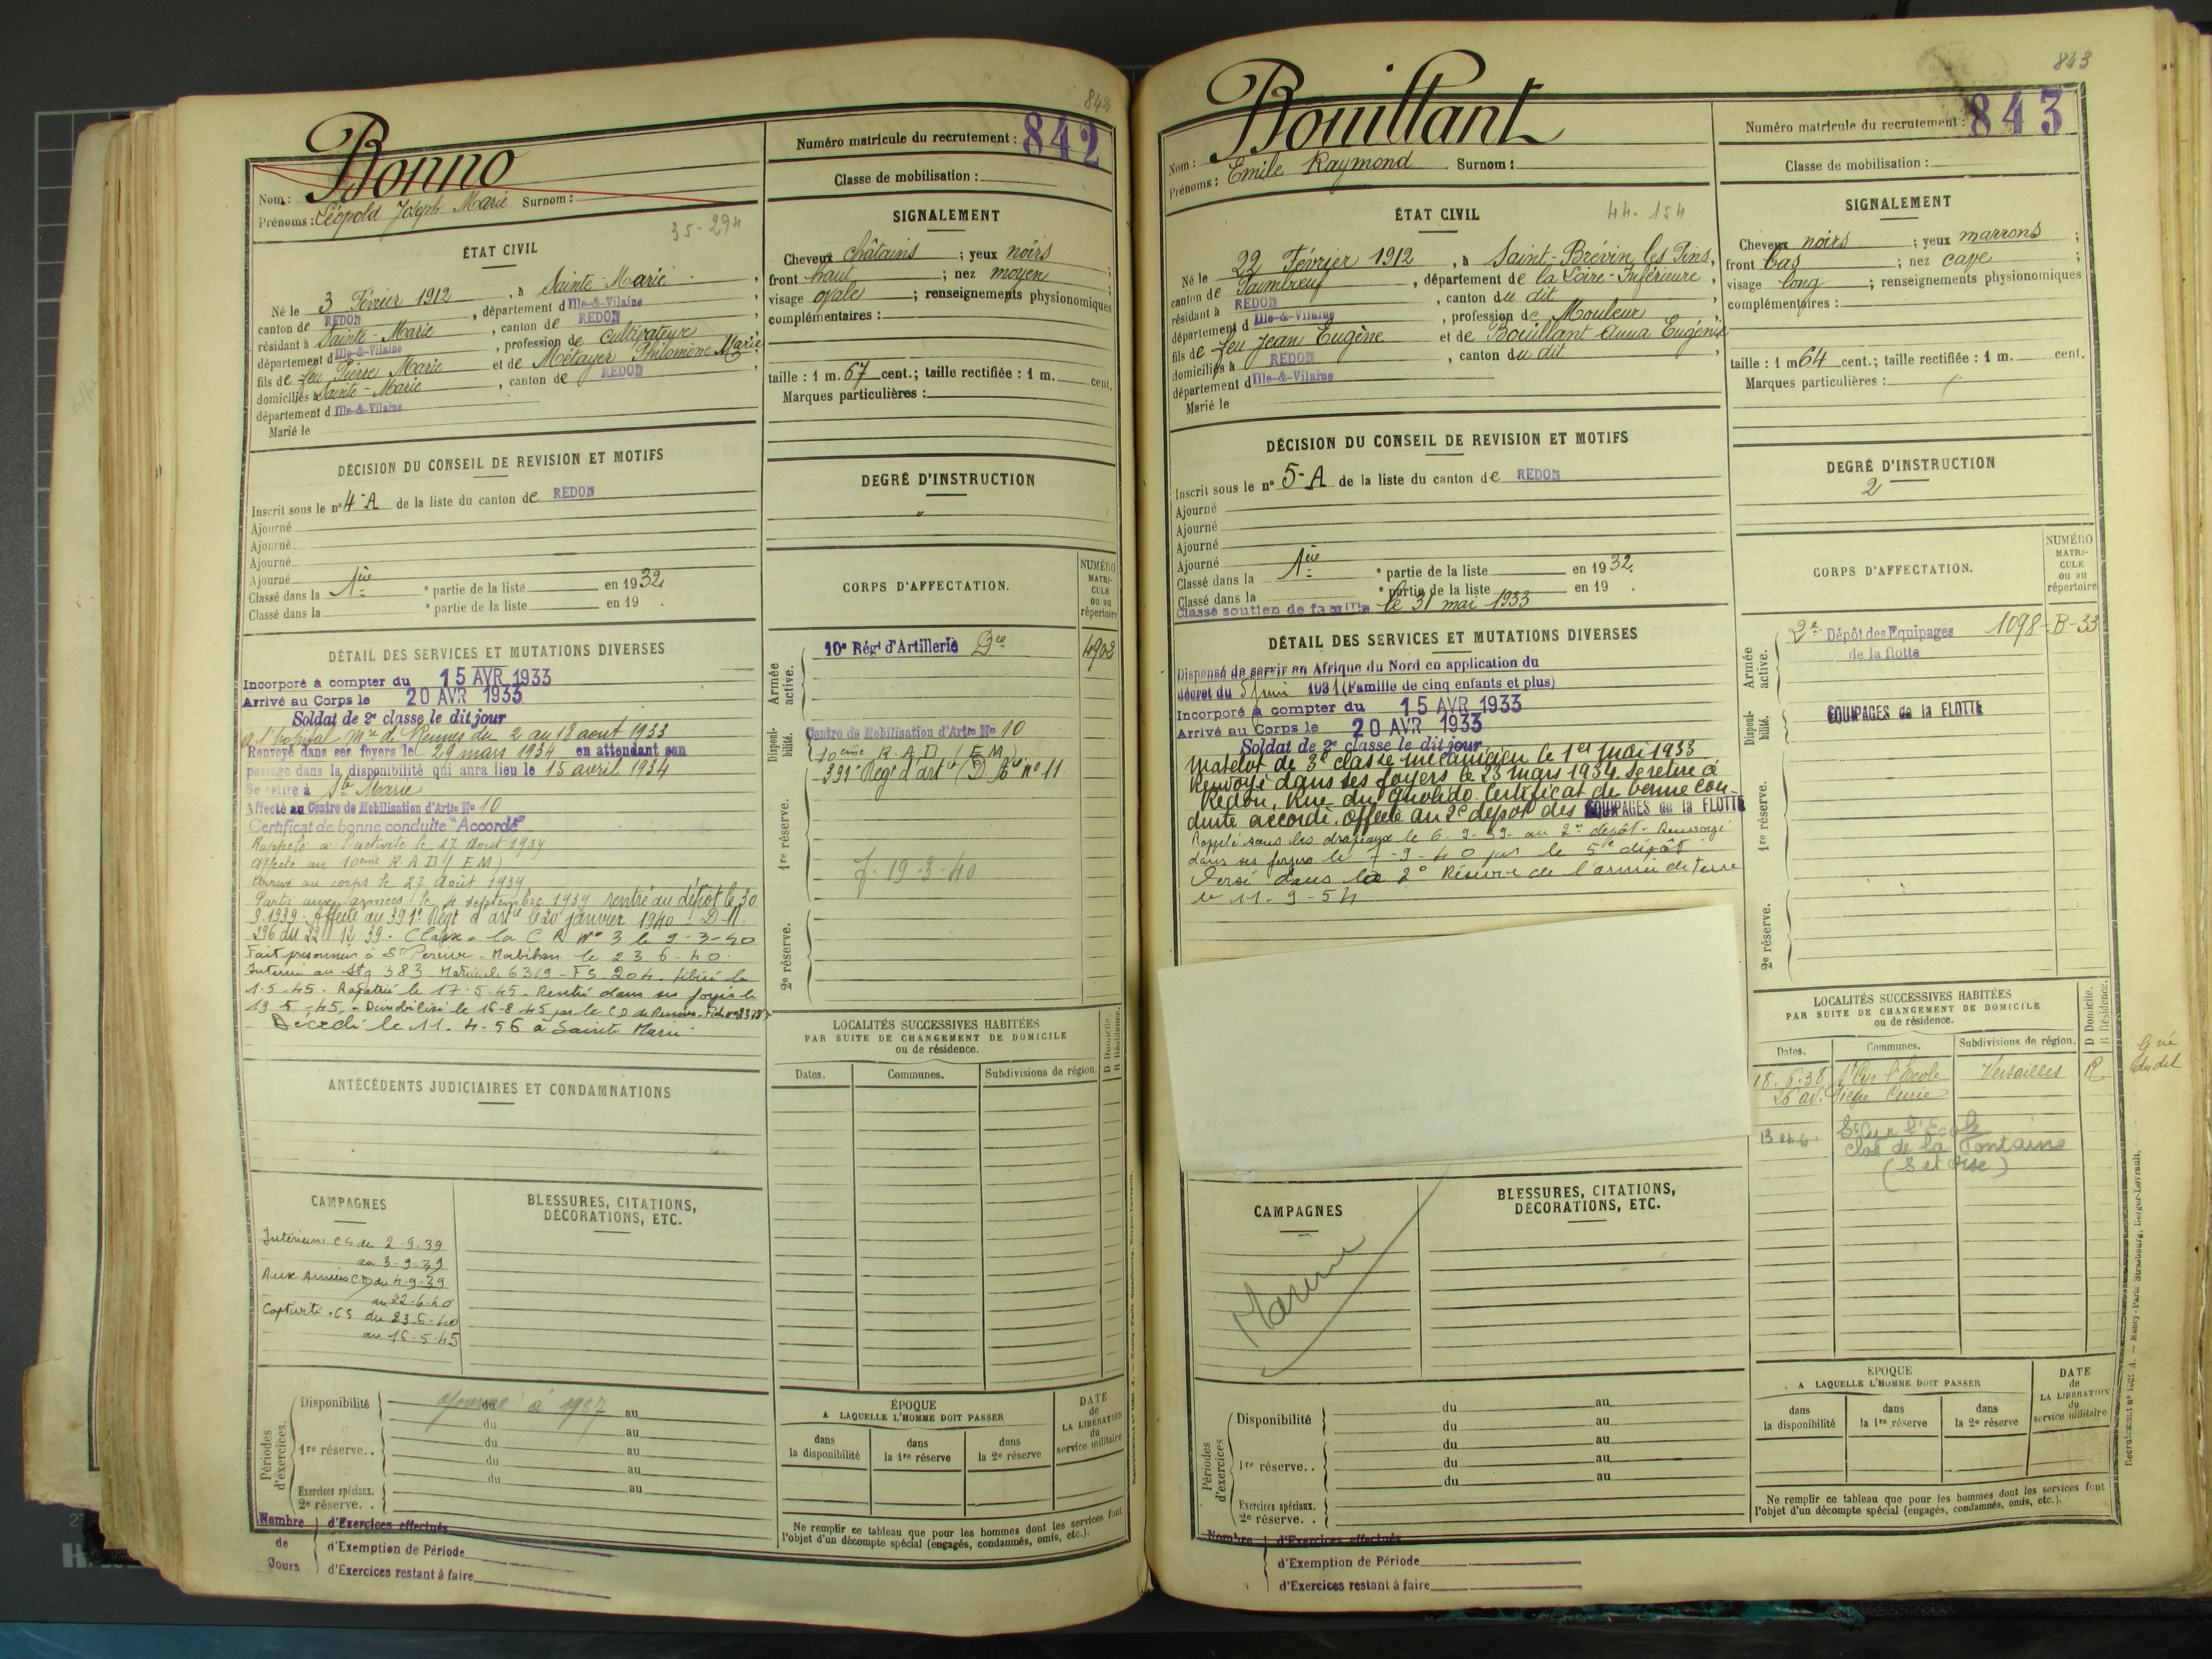 842
Bonno
Nom :
Prénoms : Léopold Joseph Marie Surnom :
35-294
Numéro matricule du recrutement : 842
Classe de mobilisation :
ÉTAT CIVIL
Né le 3 Février 1912, à Sainte-Marie,
canton de REDON, département d Ille-&-Vilaine,
résidant à Sainte-Marie, canton de REDON,
département d Ille-&-Vilaine, profession de Cultivateur
fils de feu Pierre Marie et de Métayer Philomène Marie
domiciliés à Sainte-Marie, canton de REDON,
département d Ille-&-Vilaine
Marié le
SIGNALEMENT
Cheveux châtains ; yeux noirs ;
front haut ; nez moyen ;
visage ovale ; renseignements physionomiques
complémentaires :
taille : 1 m. 67 cent.; taille rectifiée : 1 m. cent.
Marques particulières :
DÉCISION DU CONSEIL DE REVISION ET MOTIFS
Inscrit sous le n° 4-A de la liste du canton de REDON
Ajourné
Ajourné
Ajourné
Ajourné
Classé dans la 1ère partie de la liste en 1932
Classé dans la e partie de la liste en 19 .
DEGRÉ D'INSTRUCTION
"
CORPS D'AFFECTATION.
NUMÉRO MATRI-CULE ou au répertoire
Armée active.
10e Régt d'Artillerie Dre 4902
Disponi-bilité.
Centre de Mobilisation d'Artie No 10
10ème R.A.D. (E.M.)
1re réserve.
391e Régt d'art (D. Bie n° 11
f. 19-3-40
2e réserve.
DÉTAIL DES SERVICES ET MUTATIONS DIVERSES
Incorporé à compter du 15 AVR 1933
Arrivé au Corps le 20 AVR 1933
Soldat de 2e classe le dit jour
A l'hôpital Mre de Rennes du 2 au 18 aout 1933
Renvoyé dans ses foyers le 29 mars 1934 en attendant son
passage dans la disponibilité qui aura lieu le 15 avril 1934
Se retire à Ste Marie
Affecté au Centre de Mobilisation d'Artie No 10
Certificat de bonne conduite "Accordé"
Rappelé à l'activité le 27 Aout 1939
affecté au 10ème R A D (EM)
Arrivé au corps le 27 Août 1939
Parti aux armées le 4 septembre 1939 rentré au dépôt le 30
9.1939. Affecté au 391e Régt d'artie le 20 janvier 1940 - D.M.
296 du 22 12 39. Classé à la C R N° 3 le 9-3-40
Fait prisonnier à St Perreux - Morbihan le 23.6.40.
Interné au Stg 383 Matricule 6319 - FS 204. libéré le
1.5-45 - Rapatrié le 17.5-45 - Rentré dans ses foyers le
19-5-45. - Démobilisé le 16-8-45 par le CD de Rennes.
Décédé le 11.4-56 à Sainte Marie
ANTÉCÉDENTS JUDICIAIRES ET CONDAMNATIONS
LOCALITÉS SUCCESSIVES HABITÉES
PAR SUITE DE CHANGEMENT DE DOMICILE
ou de résidence.
D Domicile. R Résidence.
Dates. Communes. Subdivisions de région.
CAMPAGNES
Intérieur CS du 2-9-39
au 3-9-39
Aux Armées CD du 4-9-39
au 22-6-40
Captivité . CS du 23-6-40
au 16-5-45
BLESSURES, CITATIONS,
DÉCORATIONS, ETC.
Périodes d'exercices.
Disponibilité Ajourné à 1937 du au
du au
1re réserve. . du au
du au
du au
Exercices spéciaux.
2e réserve. .
ÉPOQUE
A LAQUELLE L'HOMME DOIT PASSER
dans la disponibilité
dans la 1re réserve
dans la 2e réserve
DATE de LA LIBÉRATION du service militaire
Ne remplir ce tableau que pour les hommes dont les services font
l'objet d'un décompte spécial (engagés, condamnés, omis, etc.).
Nombre de Jours
d'Exercices effectués
d'Exemption de Période
d'Exercices restant à faire
843
Bouillant
Nom :
Prénoms : Emile Raymond Surnom :
44-154
Numéro matricule du recrutement : 843
Classe de mobilisation :
ÉTAT CIVIL
Né le 22 Février 1912, à Saint-Brévin les Pins,
canton de Paimbœuf, département de la Loire-Inférieure,
résidant à REDON, canton du dit,
département d Ille-&-Vilaine, profession de Mouleur
fils de feu Jean Eugène et de Bouillant Anna Eugénie
domiciliés à REDON, canton du dit,
département d Ille-&-Vilaine
Marié le
SIGNALEMENT
Cheveux noirs ; yeux marrons ;
front bas ; nez cave ;
visage long ; renseignements physionomiques
complémentaires :
taille : 1 m 64 cent.; taille rectifiée : 1 m. cent.
Marques particulières :
DÉCISION DU CONSEIL DE REVISION ET MOTIFS
Inscrit sous le n° 5-A de la liste du canton de REDON
Ajourné
Ajourné
Ajourné
Ajourné
Classé dans la 1ère partie de la liste en 1932.
Classé dans la e partie de la liste en 19 .
Classé soutien de famille le 31 mai 1933
DEGRÉ D'INSTRUCTION
2
CORPS D'AFFECTATION.
NUMÉRO MATRI-CULE ou au répertoire
Armée active.
2e Dépôt des Equipages 1098-B-33
de la flotte
Disponi-bilité.
EQUIPAGES de la FLOTTE
1re réserve.
2e réserve.
DÉTAIL DES SERVICES ET MUTATIONS DIVERSES
Dispensé de servir en Afrique du Nord en application du
décret du 5 juin 1931 (Famille de cinq enfants et plus)
Incorporé à compter du 15 AVR 1933
Arrivé au Corps le 20 AVR 1933
Soldat de 2e classe le dit jour
Matelot de 3e classe mécanicien le 1er Mai 1933
Renvoyé dans ses foyers le 23 mars 1934. Se retire à
Redon, Rue du Certificat de bonne con-
duite accordé. Affecté au 2e dépôt des EQUIPAGES de la FLOTTE
Rappelé sous les drapeaux le 6-9-39 au 2e dépôt - Renvoyé
dans ses foyers le 7-9-40 par le 5e dépôt
Versé dans la 2e Réserve de l'armée de terre
le 11-9-54
LOCALITÉS SUCCESSIVES HABITÉES
PAR SUITE DE CHANGEMENT DE DOMICILE
ou de résidence.
D Domicile. R Résidence.
Dates. Communes. Subdivisions de région.
18.6.38 St Cyr l'Ecole Versailles R
26 av. Pierre Curie
13 St Cyr l'Ecole
Clos de la Fontaine
(S et Oise)
CAMPAGNES
Marine
BLESSURES, CITATIONS,
DÉCORATIONS, ETC.
Périodes d'exercices
Disponibilité du au
du au
1re réserve. . du au
du au
du au
Exercices spéciaux.
2e réserve. .
ÉPOQUE
A LAQUELLE L'HOMME DOIT PASSER
dans la disponibilité
dans la 1re réserve
dans la 2e réserve
DATE de LA LIBÉRATION du service militaire
Ne remplir ce tableau que pour les hommes dont les services font
l'objet d'un décompte spécial (engagés, condamnés, omis, etc.).
Nombre
d'Exercices effectués
d'Exemption de Période
d'Exercices restant à faire